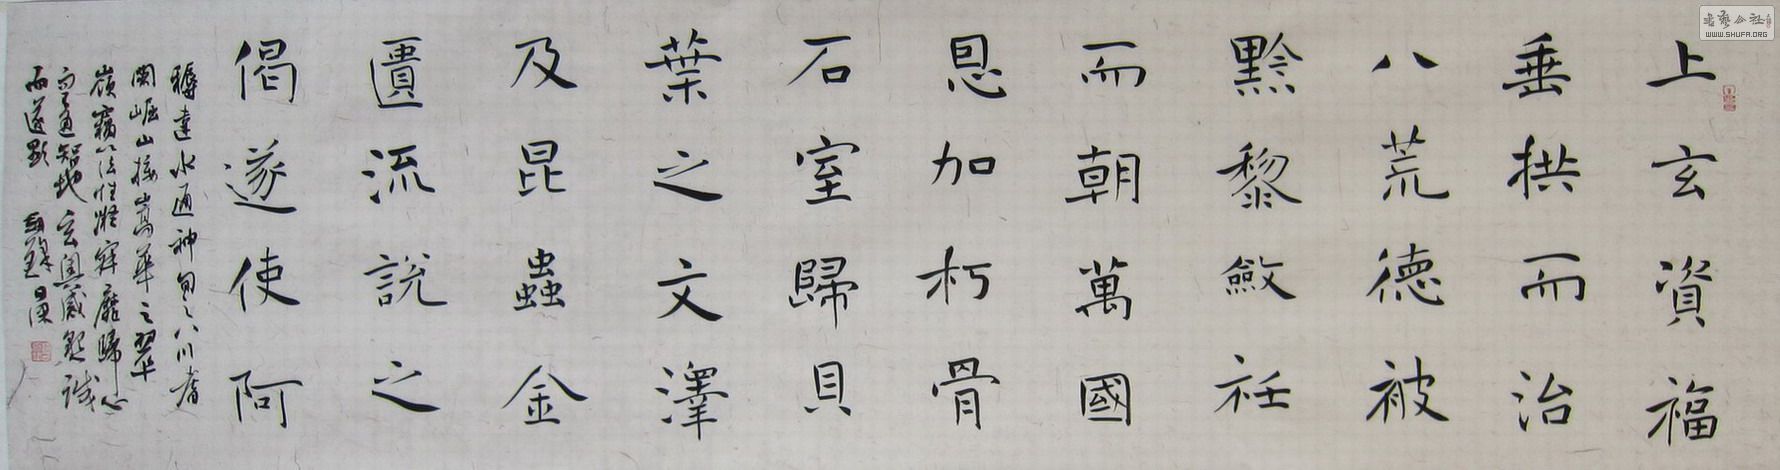 上玄資福
垂拱而治
八荒德被
黔黎斂衽
而朝萬國
恩加朽骨
石室歸貝
葉之文澤
及昆蟲金
匱流說之
偈遂使阿
耨達水通神甸之八川耆
闍崛山接嵩華之翠
嶺竊以法性凝寂靡歸心
而不通智地玄奧感懇誠
而遂顯
書藝公社
WWW.SHUFA.ORG